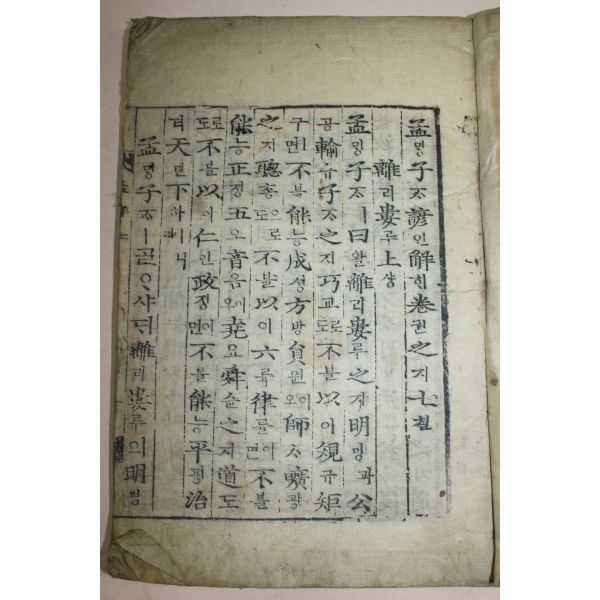 孟밍子ᄌᆞ諺언解ᄒᆡ卷권之지七칠
離리婁루上샹
孟밍子ᄌᆞㅣ曰왈離리婁루之지明밍과公
공輸슈子ᄌᆞ之지巧교로도不블以이規규矩
구ㅣ면不블能능成셩方방員원이오師ᄉᆞ曠광
之지聰총으로도不블以이六륙律률이면不블
能능正졍五오音음이오堯요舜슌之지道도
로도不블以이仁인政졍이면不블能능平평治
티天텬下하
孟밍子ᄌᆞㅣᄀᆞᆯᄋᆞ샤ᄃᆡ離리婁루의明밍